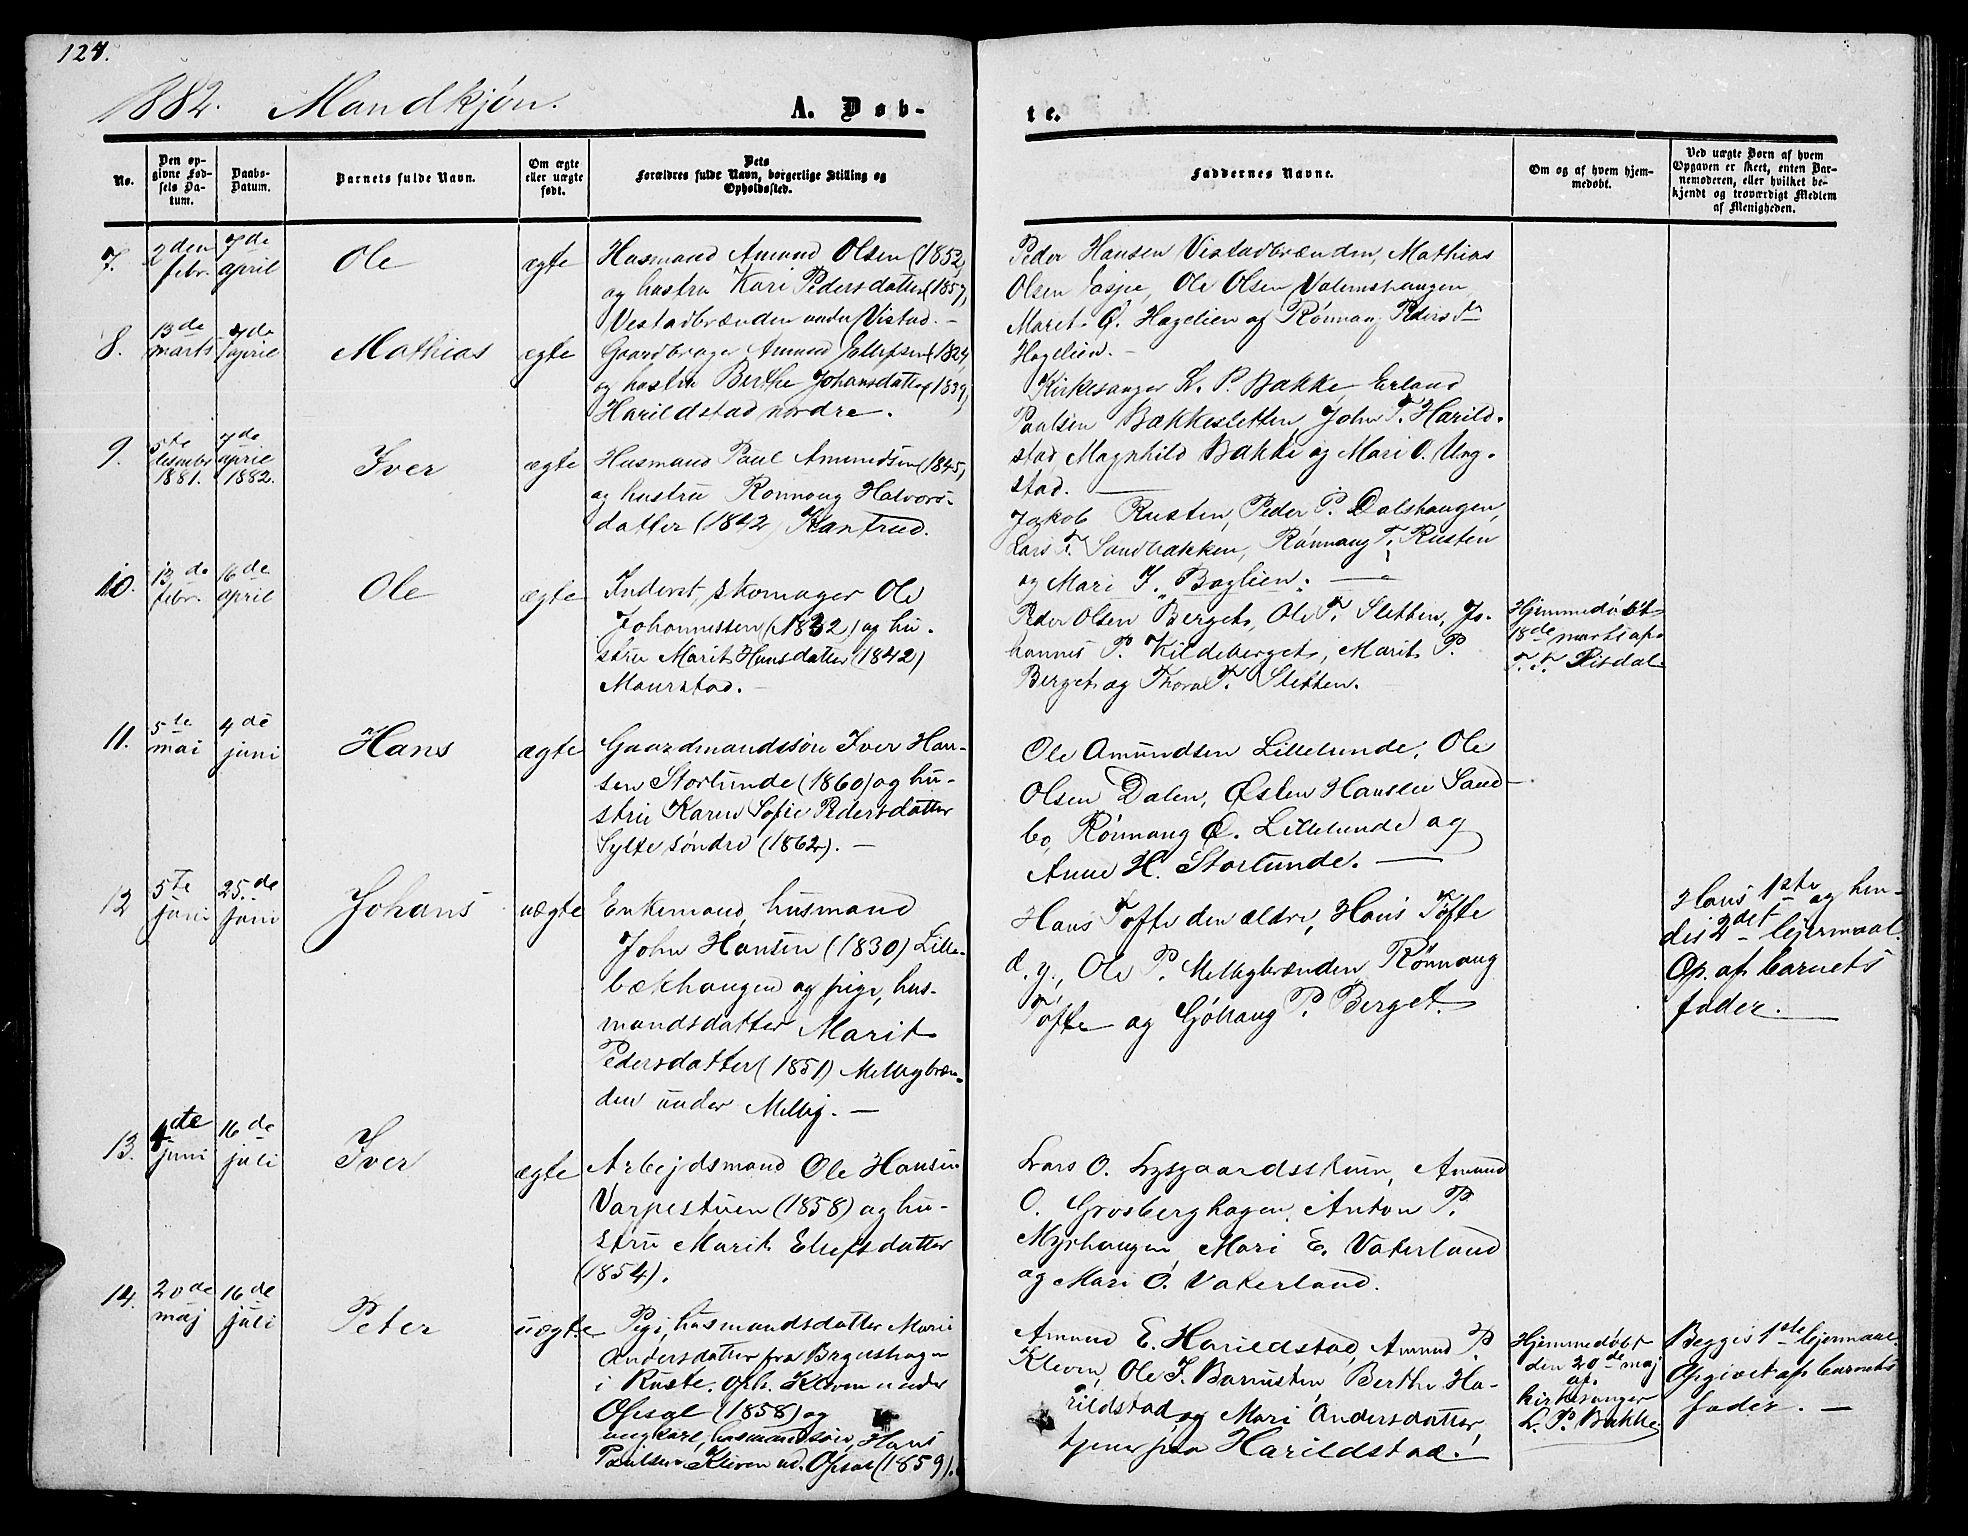 127.
1882. Mandkjøn. A. Døb-
te.
No.
Den op-
givne Fød-
sels Da-
tum.
Daabs-
Datum.
Barnets fulde Navn.
Om ægte
eller uægte
født.
Dets
Forældres fulde Navn, borgerlige Stilling og
Opholdssted.
Faddernes Navne.
Om og af hvem hjem-
medøbt.
Ved uægte Børn af hvem
Opgaven er skeet, enten Bar-
nemoderen, eller hvilket be-
kjendt og troværdigt Medlem
af Menigheden.
7.
2den
febr.
7de
april
Ole
ægte
Husmand Amund Olsen (1852)
og hustru Kari Pedersdatter (1857)
Vestadbrænden under Vistad. -
Peder Hansen Vistadbrænden, Mathias
Olsen Jaspe, Ole Olsen Valemshaugen
Marit Ø. Hagelien og Rønnaug Pedersdr
Hagelien. -
8.
13de
marts
7de
april
Mathias
ægte
Gaardbruger Amund Ellefsen (1824)
og hustru Berthe Johansdatter (1839)
Harildstad nordre.
Kirkesanger L. P. Bakke, Erland
Paulsen Bækkesletten, John T. Harild-
stad Magnhild Bakke og Mari O. Ung-
stad. -
9.
5te
desember
1881.
7de
april
1882.
Iver
ægte
Husmand Paul Amundsen (1845)
og hustru Rønnoug Halvors-
datter (1842) Kantrud.
Jakob Rusten, Peder P. Dalshaugen,
Lars T. Sandbakken, Rønnaug T. Rusten
og Mari J. Baglien. -
10.
13de
febr.
16de
april
Ole
ægte
Inderst, skomager Ole
Johannessen (1832) og hu-
stru Marit Hansdatter (1842)
Maurstad. -
Peder Olsen Berget, Ole T. Sletten, Jo-
hannes P. Kildeberget, Marit P.
Berget og Thora T. Sletten.
Hjemmedøbt
18de marts af
T. T. Risdal.
11.
5te
mai
4de
juni
Hans
ægte
Gaardmandssøn Iver Han-
sen Storlunde (1860) og hu-
stru Karen Sofie Pedersdatter
Sylte søndre (1862). -
Ole Amundsen Lillelunde, Ole
Olsen Dalen, Østen Hansen Sand-
bo, Rønnaug O. Lillelunde og
Anne H. Storlunde. -
12
5te
juni
25de
juni
Johans
uægte
Enkemand, husmand
John Hansen (1830) Lille-
bækhaugen og pige, hus-
mandsdatter Marit
Pedersdatter (1851) Melbybræn-
den under Melby. -
Hans Tofte den ældre, Hans Tofte
d. y., Ole P. Melbybrænden Rønnaug
Tofte og Gjøllaug P. Berget.
Hans 1ste og hen-
des 2det lejermaal.
Op. af barnets
fader. -
13.
4de
juni
16de
juli
Iver
ægte
Arbejdsmand Ole Hansen
Varpestuen (1858) og hu-
stru Marit Ellefsdatter
(1854).
Lars O. Lysgaardsstuen, Amund
O. Grosberghagen, Anton P.
Myrhaugen, Mari E. Vaterland
og Mari O. Vaterland.
14.
20de
maj
16de
juli
Peter
uægte
Pige, husmandsdatter Mari
Andersdatter fra Brynshagen
i Ruste, oph. Kleven under
Opsal (1858) og
ungkarl, husmandssøn, Hans
Paulsen Kleven ud. Opsal (1859).
Amund E. Harildstad, Amund P.
Kleven, Ole J. Barnsten, Berthe Ha-
rildstad og Mari Andersdatter,
tjener paa Harildstad.
Hjemmedøbt
den 20de maj
af
kirkesanger
L. P. Bakke
Begges 1ste lejermaal.
Opgivet af barnets
fader. -